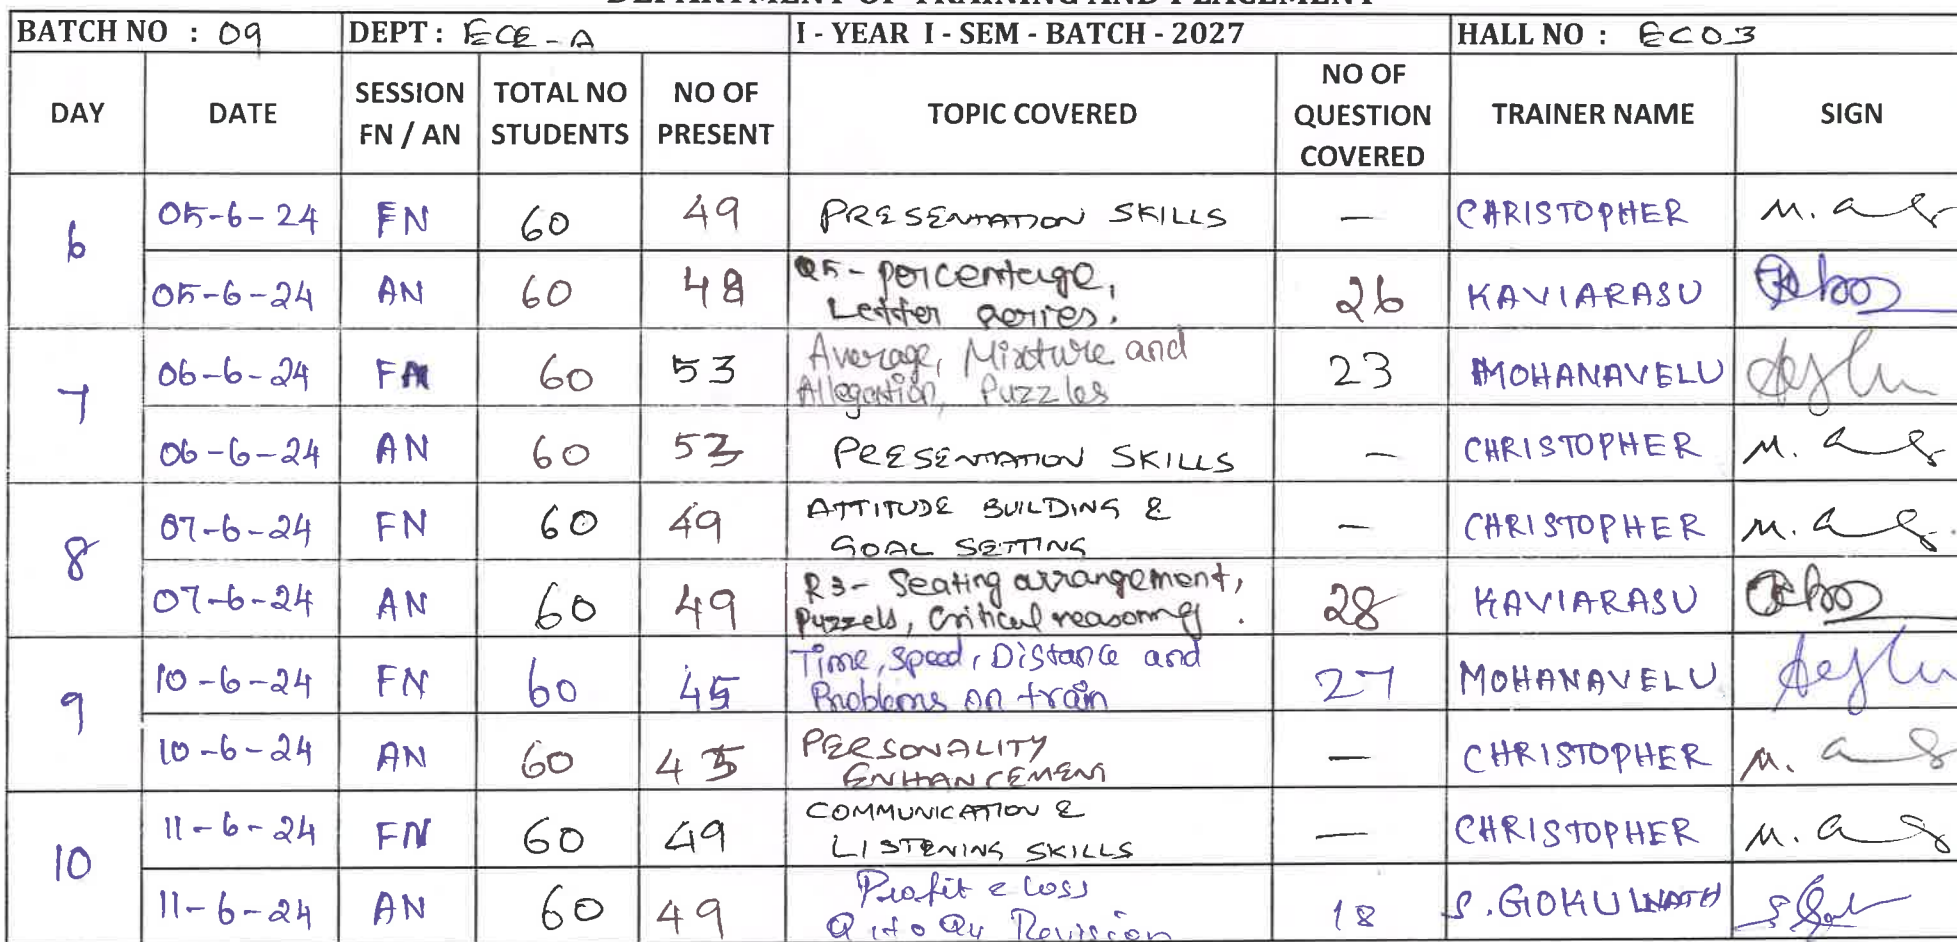 DEPARTMENT OF TRAINING AND PLACEMENT
BATCH NO : 09 DEPT : ECE - A I - YEAR I - SEM - BATCH - 2027 HALL NO : EC03
DAY DATE SESSION FN / AN TOTAL NO STUDENTS NO OF PRESENT TOPIC COVERED NO OF QUESTION COVERED TRAINER NAME SIGN
6 05-6-24 FN 60 49 PRESENTATION SKILLS — CHRISTOPHER
05-6-24 AN 60 48 Q5 - percentage, Letter series. 26 KAVIARASU
7 06-6-24 FN 60 53 Average, Mixture and Allegation, Puzzles 23 MOHANAVELU
06-6-24 AN 60 53 PRESENTATION SKILLS — CHRISTOPHER
8 07-6-24 FN 60 49 ATTITUDE BUILDING & GOAL SETTING — CHRISTOPHER
07-6-24 AN 60 49 R3 - Seating arrangement, Puzzels, Critical reasoning. 28 KAVIARASU
9 10-6-24 FN 60 45 Time, Speed, Distance and Problems on train 27 MOHANAVELU
10-6-24 AN 60 45 PERSONALITY ENHANCEMENT — CHRISTOPHER
10 11-6-24 FN 60 49 COMMUNICATION & LISTENING SKILLS — CHRISTOPHER
11-6-24 AN 60 49 Profit & Loss Q1 to Q4 Revision 18 S. GOKULNATH